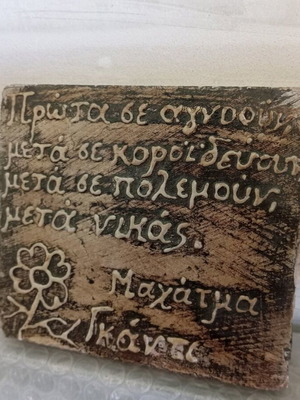 Πρώτα σε αγνοούν,
μετά σε κοροϊδεύουν
μετά σε πολεμούν,
μετά νικάς.
Μαχάτμα
Γκάντι